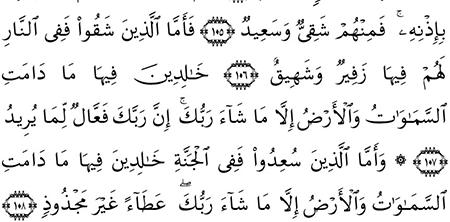 بِإِذْنِهِۦۚ فَمِنْهُمْ شَقِىٌّ وَسَعِيدٌ ﴿١٠٥﴾ فَأَمَّا ٱلَّذِينَ شَقُوا۟ فَفِى ٱلنَّارِ
لَهُمْ فِيهَا زَفِيرٌ وَشَهِيقٌ ﴿١٠٦﴾ خَٰلِدِينَ فِيهَا مَا دَامَتِ
ٱلسَّمَٰوَٰتُ وَٱلْأَرْضُ إِلَّا مَا شَآءَ رَبُّكَۚ إِنَّ رَبَّكَ فَعَّالٌ لِّمَا يُرِيدُ
﴿١٠٧﴾ ۞ وَأَمَّا ٱلَّذِينَ سُعِدُوا۟ فَفِى ٱلْجَنَّةِ خَٰلِدِينَ فِيهَا مَا دَامَتِ
ٱلسَّمَٰوَٰتُ وَٱلْأَرْضُ إِلَّا مَا شَآءَ رَبُّكَۖ عَطَآءً غَيْرَ مَجْذُوذٍ ﴿١٠٨﴾